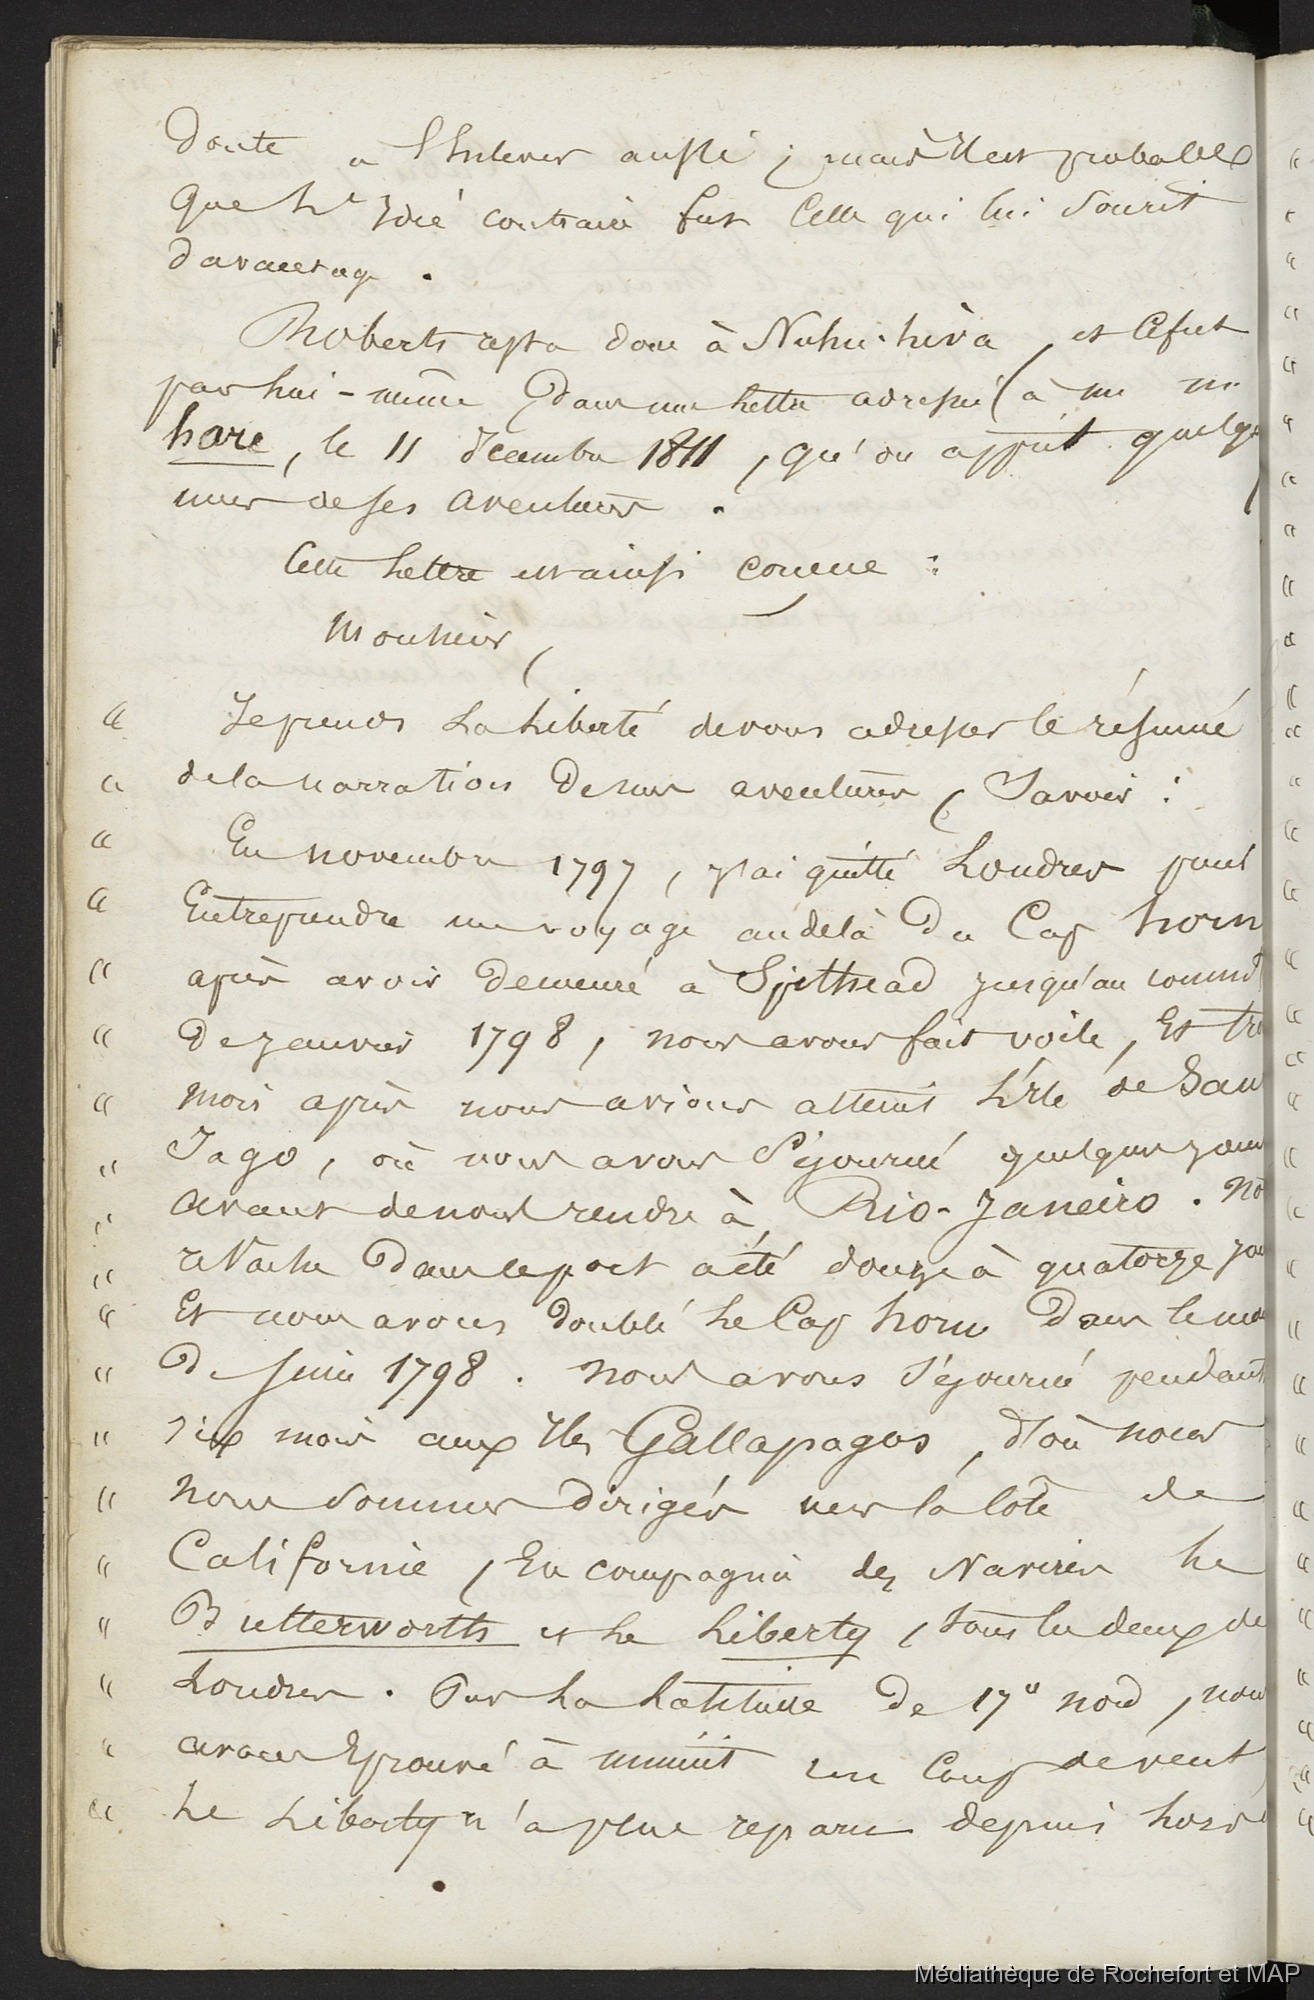 doute à l'hiverner aussi ; mais il est probable
que l'idée contraire fut celle qui lui sourit
davantage .
Roberts resta donc à Nuhu-hiva , et ce fut
par lui-même , dans une lettre adressée à un mr
hare , le 11 décembre 1811 , qu'on apprit quelqu
unes de ses aventures .
Cette lettre est ainsi conçue :
Monsieur ,
" Je prends la liberté de vous adresser le résumé
" de la narration de mes aventures , Savoir :
" En novembre 1797 , j'ai quitté Londres pour
" Entreprendre un voyage au delà du Cap horn
" après avoir demeuré à Spithead jusqu'au commt
" de janvier 1798 , nous avons fait voile , Et tro
" mois après nous avions atteint l'île de San
" Jago , où nous avons séjourné quelques jours
" avant de nous rendre à Rio-Janeiro . No
" relâche dans le port a été douze à quatorze jou
" Et nous avons doublé le Cap horn Dans le moi
" De Juin 1798 . nous avons séjourné pendant
" six mois aux Iles Gallapagos , d'où nous
" nous sommes dirigés vers la côte de
" Californie , En compagnie des Navires le
" Butterworth et le Liberty , tous les deux de
" Londres . Par la latitude de 17° nord , nous
" avons Eprouvé à minuit un coup de vent ,
" Le Liberty n'a plus reparu depuis lors
Médiathèque de Rochefort et MAP